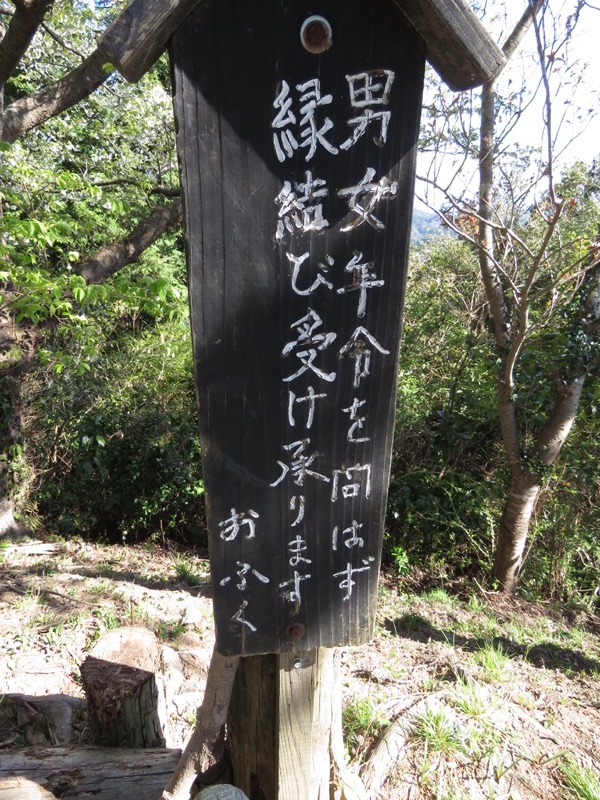 男女年令を問はず
縁結び受け承ります
おふく